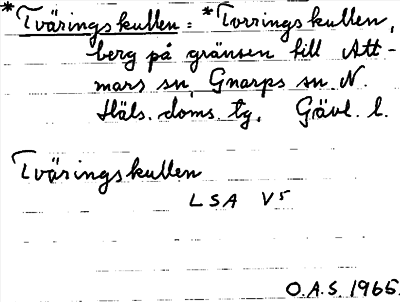 *Tväringskullen = *Torringskullen,
berg på gränsen till Att-
mars sn, Gnarps sn N.
Häls. doms. tg. Gävl. l.
Tväringskullen
LSA V5
O.A.S. 1965.